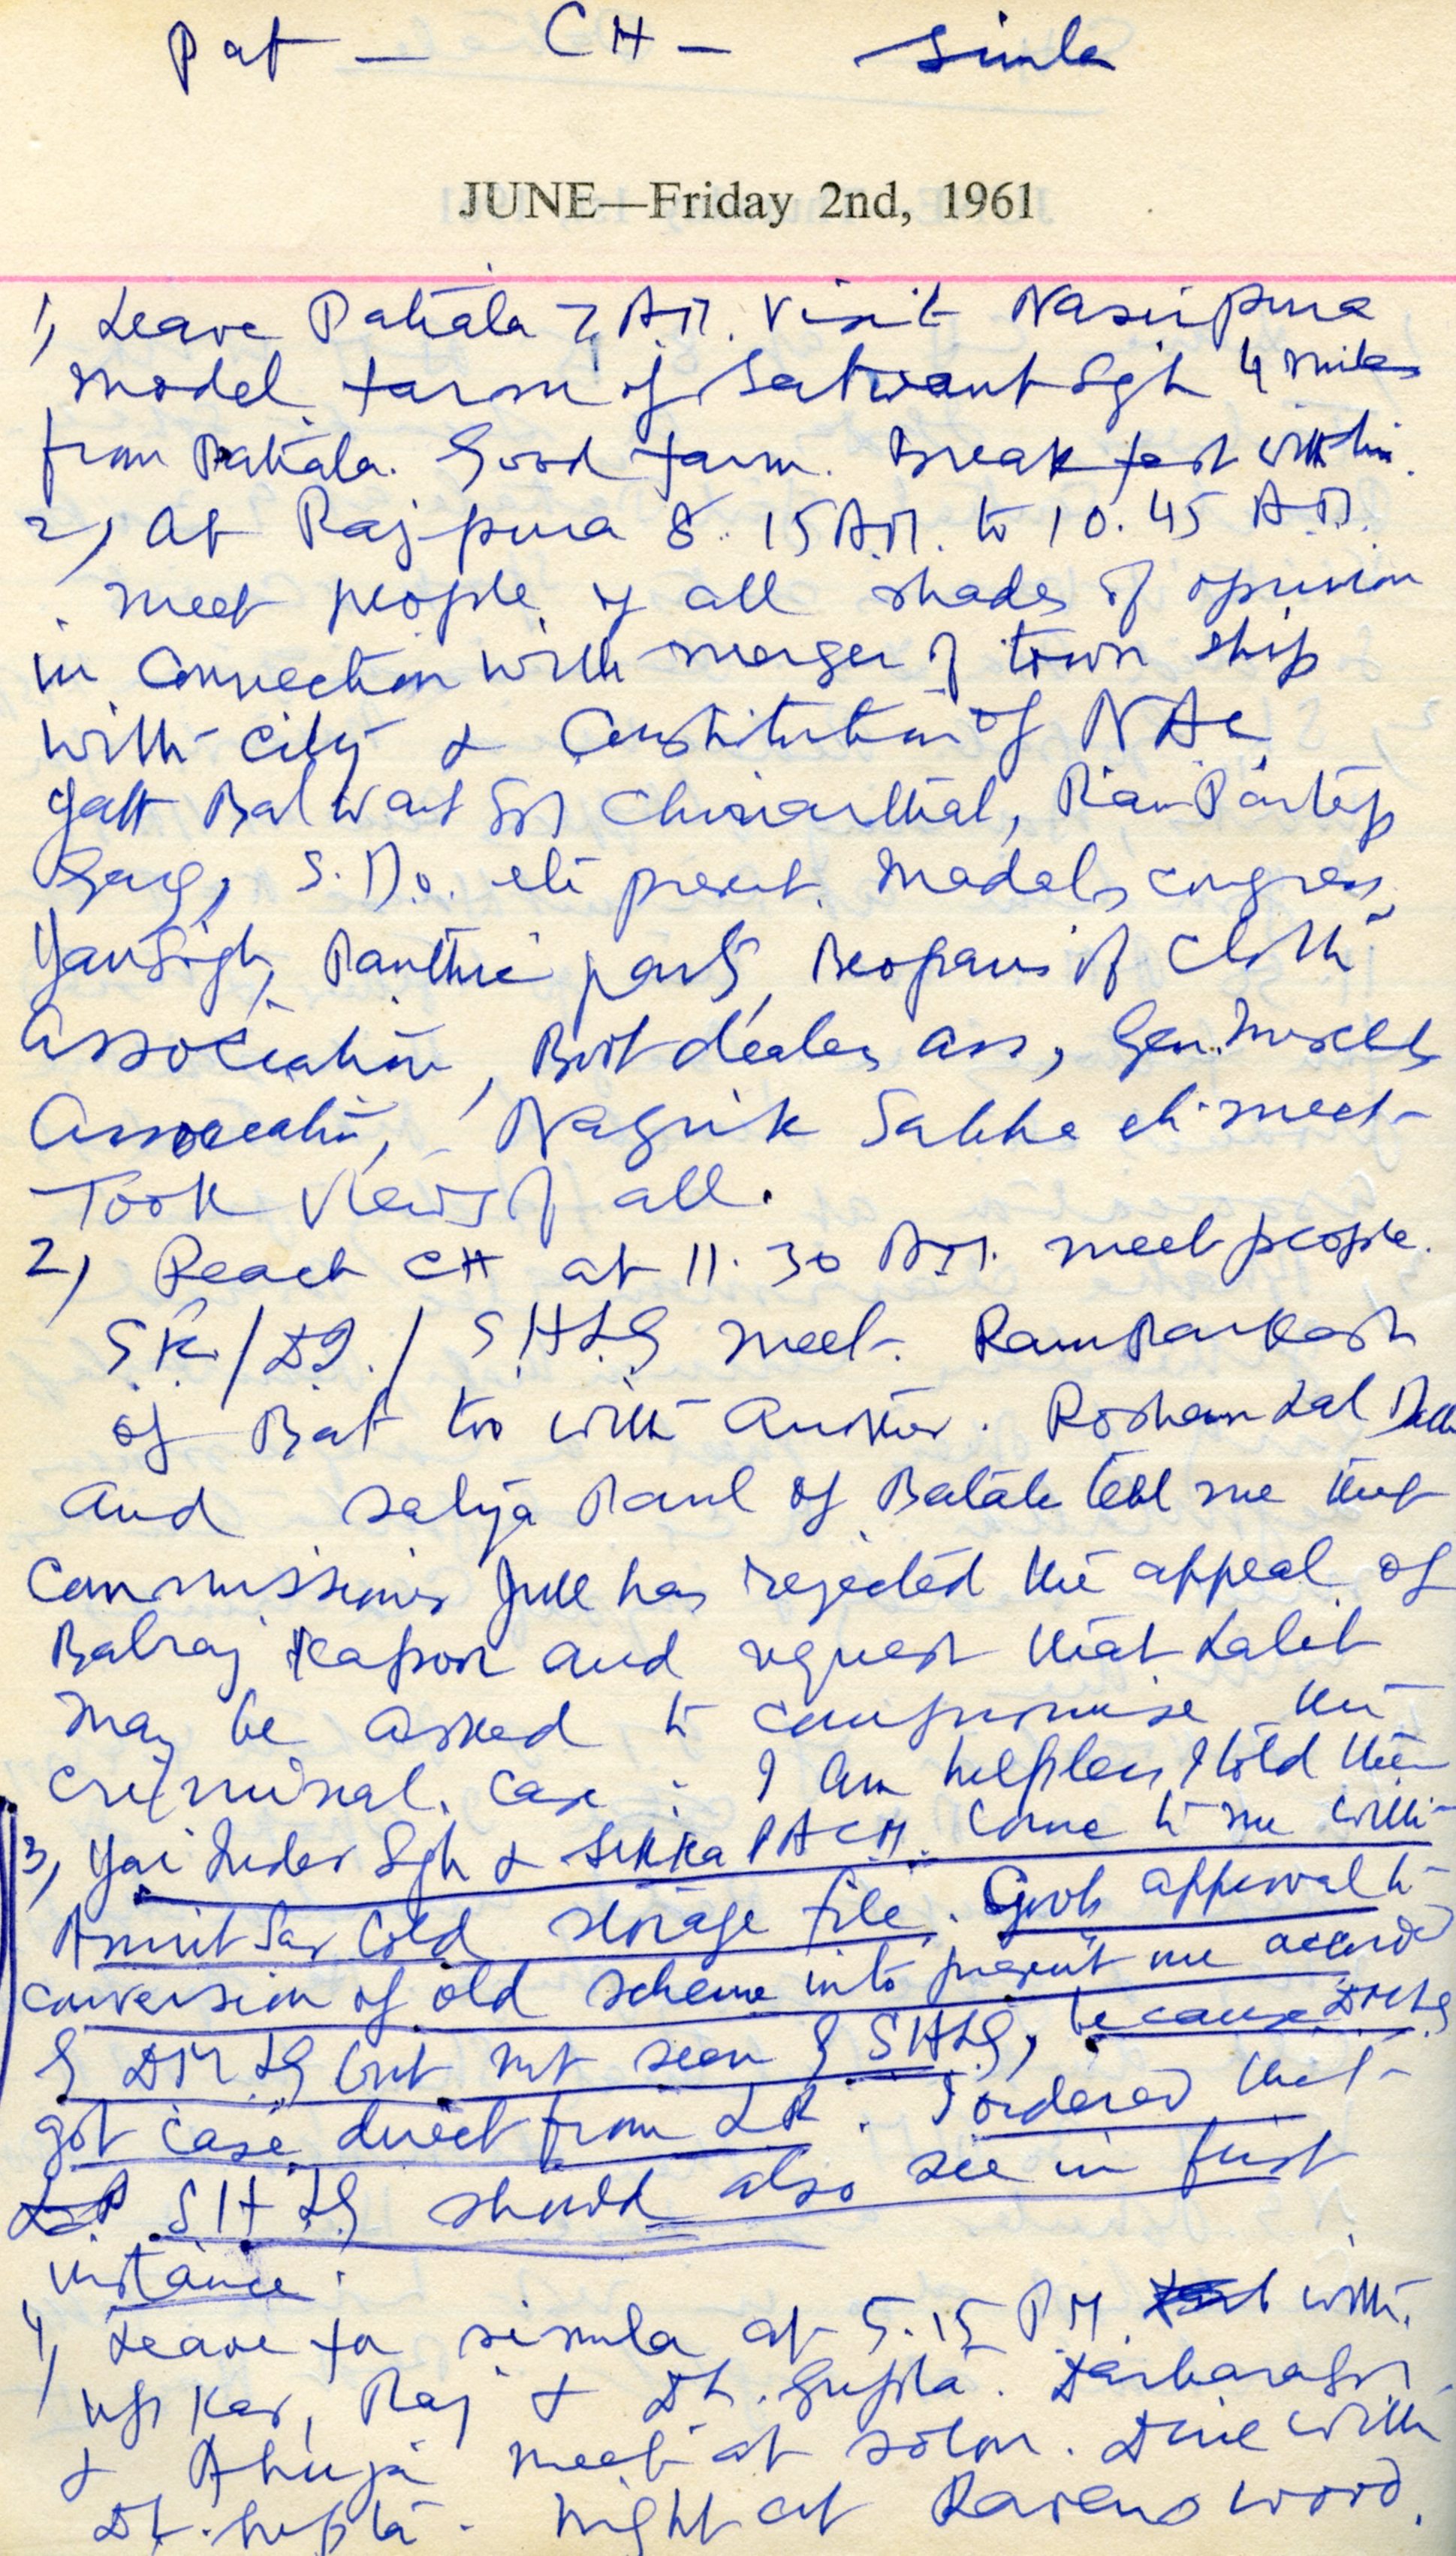 Pat — CH — Simla
JUNE—Friday 2nd, 1961
1, Leave Patiala 7 A.M. Visit Nasirpura
model farm of Satwant Sgh 4 miles
from Patiala. Good farm. Break fast with him.
2, At Rajpura 8.15 A.M. to 10.45 A.M.
meet people of all shades of opinion
in connection with merger of town ship
with city & constitution of NAC
Balwant Chinarthal, Ram Partap
Garg, S.D.O. etc present. congress,
Jan Sigh, Panthic party, Beoparis of Cloth
Association, Boot dealers Ass, Gen.
Association, Nagrik Sabha etc meet
Took views of all.
2, Reach CH at 11.30 A.M. meet people.
S.K./D.G./S.H.L.G meet. Ram Parkash
of Bat too with another. Roshan Lal
and Satya Paul of Batala tell me that
Commissioner Gill has rejected the appeal of
Balraj Kapoor and request that Lalit
may be asked to compromise the
criminal case. I am helpless I told them
3, Jai Inder Sgh & Sikka PACM. Come to me with
Amritsar Cold storage file. Govt approval to
conversion of old scheme into present one accorded
by DMLG but not seen by SHLG, because DMLG
got case direct from LR. I ordered that
SHLG should also see in first
instance.
4, Leave for simla at 5.15 P.M. with
Upkar, Raj & Dr. Gupta. Darbara
& Ahuja meet at solon. Dine with
Dr. Gupta. Night at Ravens wood.